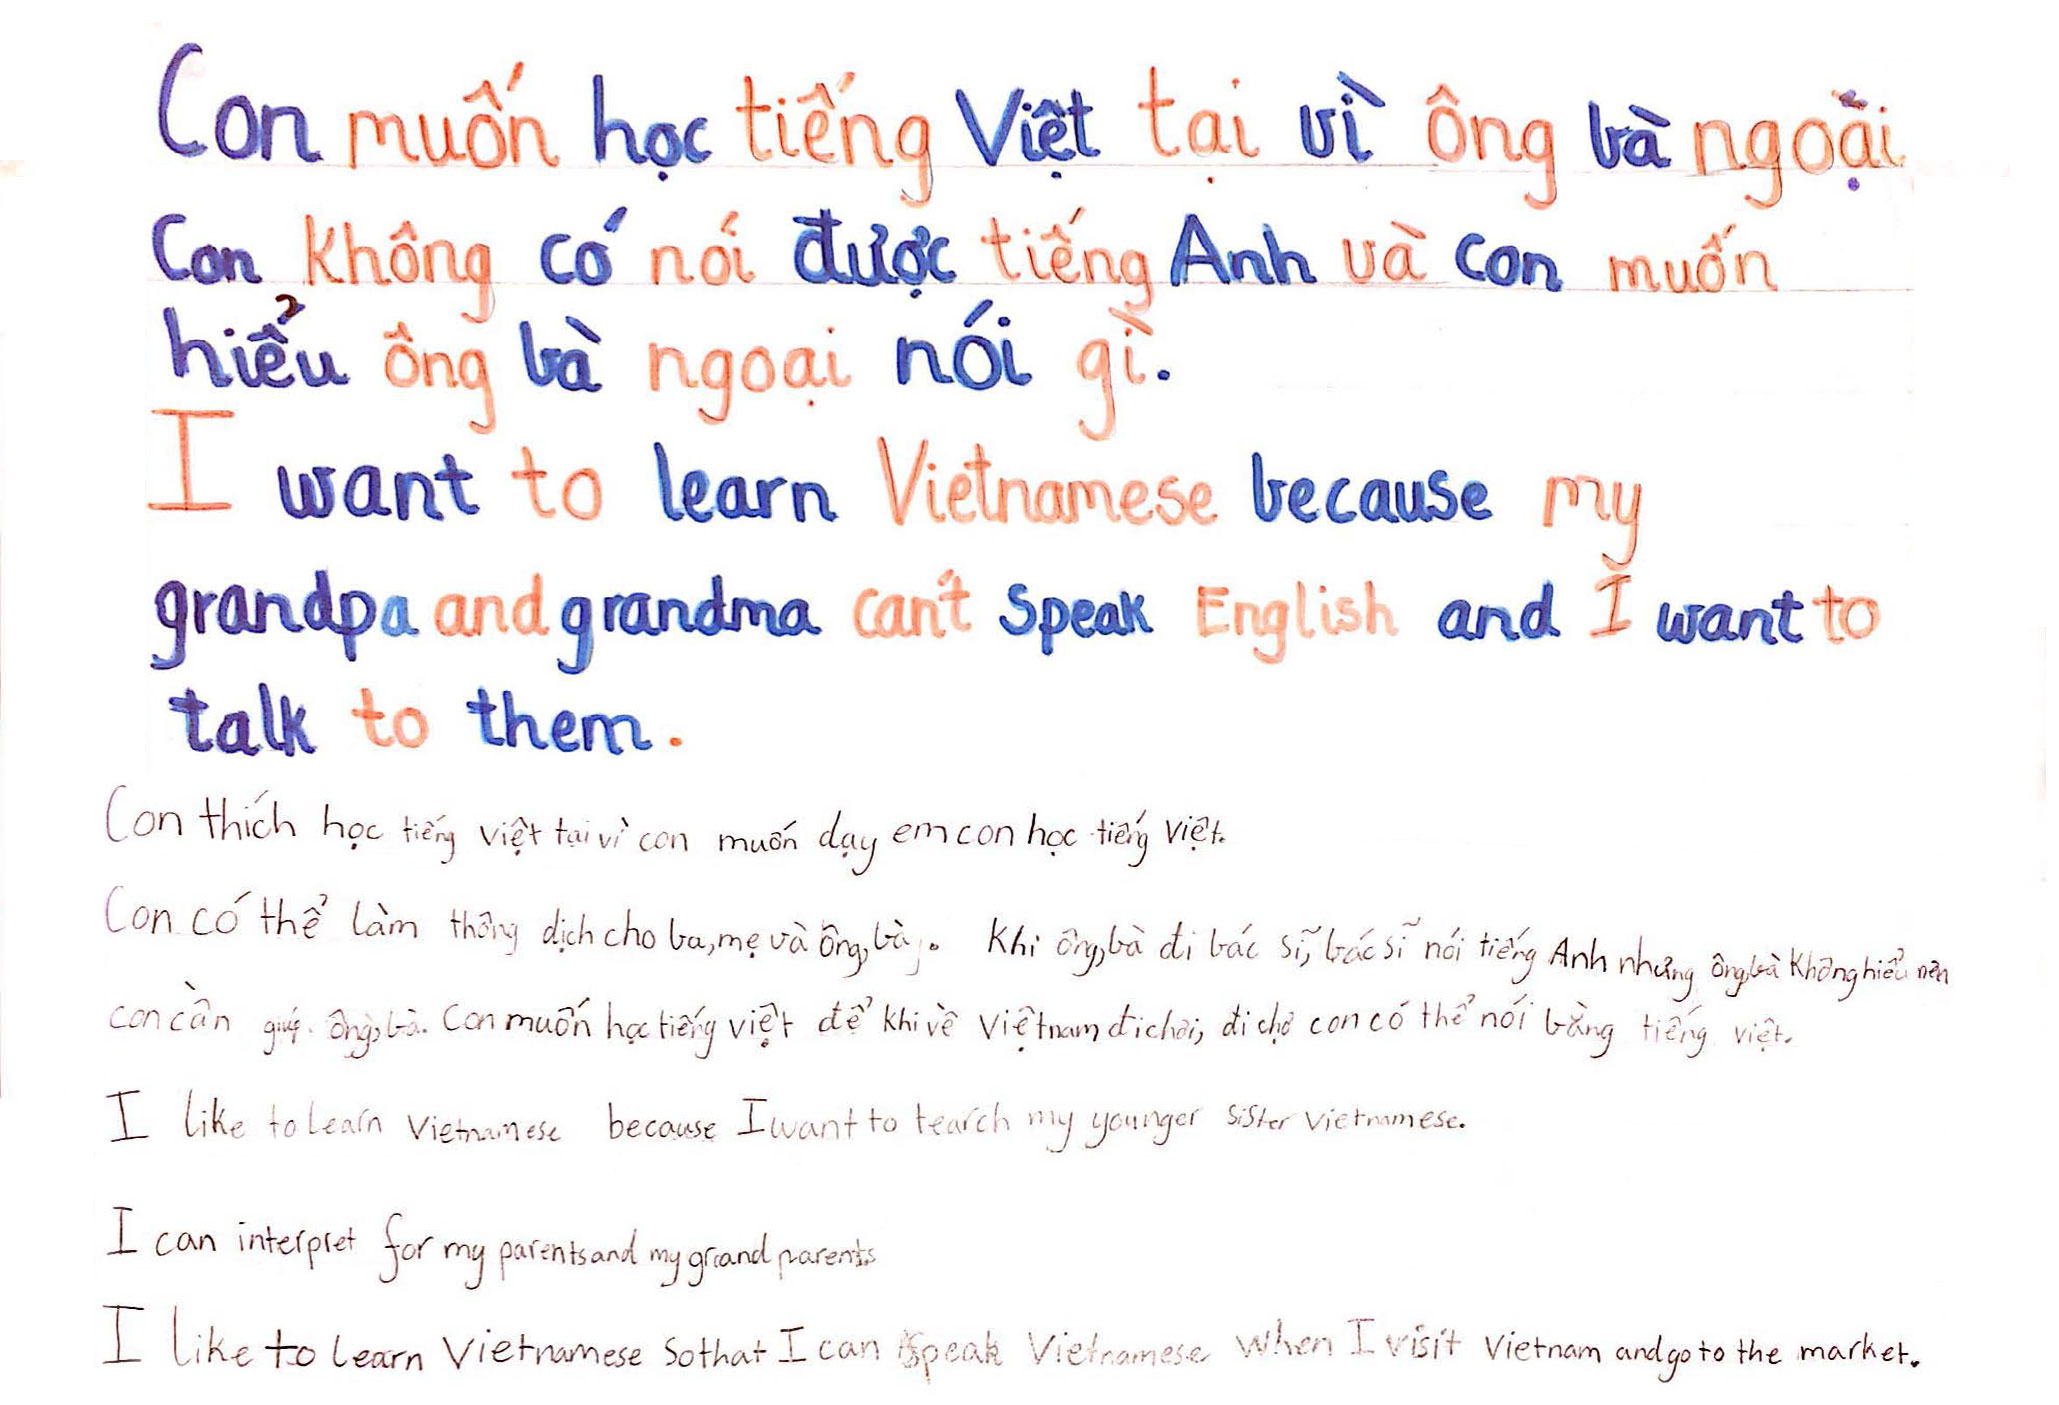 Con muốn học tiếng Việt tại vì ông bà ngoại
con không có nói được tiếng Anh và con muốn
hiểu ông bà ngoại nói gì.
I want to learn Vietnamese because my
grandpa and grandma can't speak English and I want to
talk to them.
Con thích học tiếng việt tại vì con muốn dạy em con học tiếng việt.
Con có thể làm thông dịch cho ba, mẹ và ông, bà,. Khi ông, bà đi bác sĩ, bác sĩ nói tiếng Anh nhưng ông, bà không hiểu nên
con cần giúp ông, bà. Con muốn học tiếng việt để khi về Việt nam đi chơi, đi chợ con có thể nói bằng tiếng việt.
I like to learn Vietnamese because I want to tearch my younger sister Vietnamese.
I can interpret for my parents and my grand parents
I like to learn Vietnamese so that I can speak Vietnamese when I visit Vietnam and go to the market.